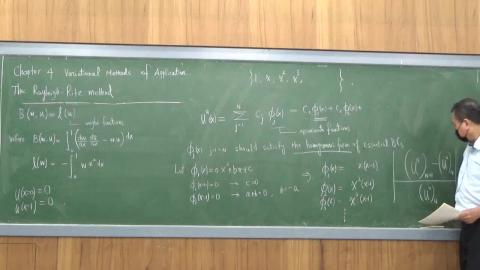 Chapter 4 Variational Methods of Application
The Rayleigh-Ritz method
B(w, u) = l(w)
weight functions
where B(w, u) = ∫₀¹ (dw/dx du/dx - w u) dx
l(w) = - ∫₀¹ w x² dx
u(x=0) = 0
u(x=1) = 0
{1, x, x², x³, }
uᴺ(x) = Σ_{j=1}^{N} cⱼ ϕⱼ(x) = c₁ϕ₁(x) + c₂ϕ₂(x) +
approximate functions
ϕⱼ(x) j=1~N should satisfy the homogeneous form of essential BCs
Let ϕ₁(x) = a x² + bx + c
ϕ₁(x=0) = 0 → c = 0
ϕ₁(x=1) = 0 → a + b = 0, b = -a
⇒ ϕ₁(x) = x(x-1)
ϕ₂(x) = x²(x-1)
ϕ₃(x) = x³(x-1)